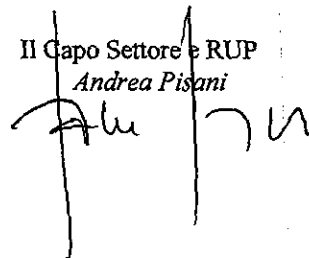 Il Capo Settore e RUP
Andrea Pisani